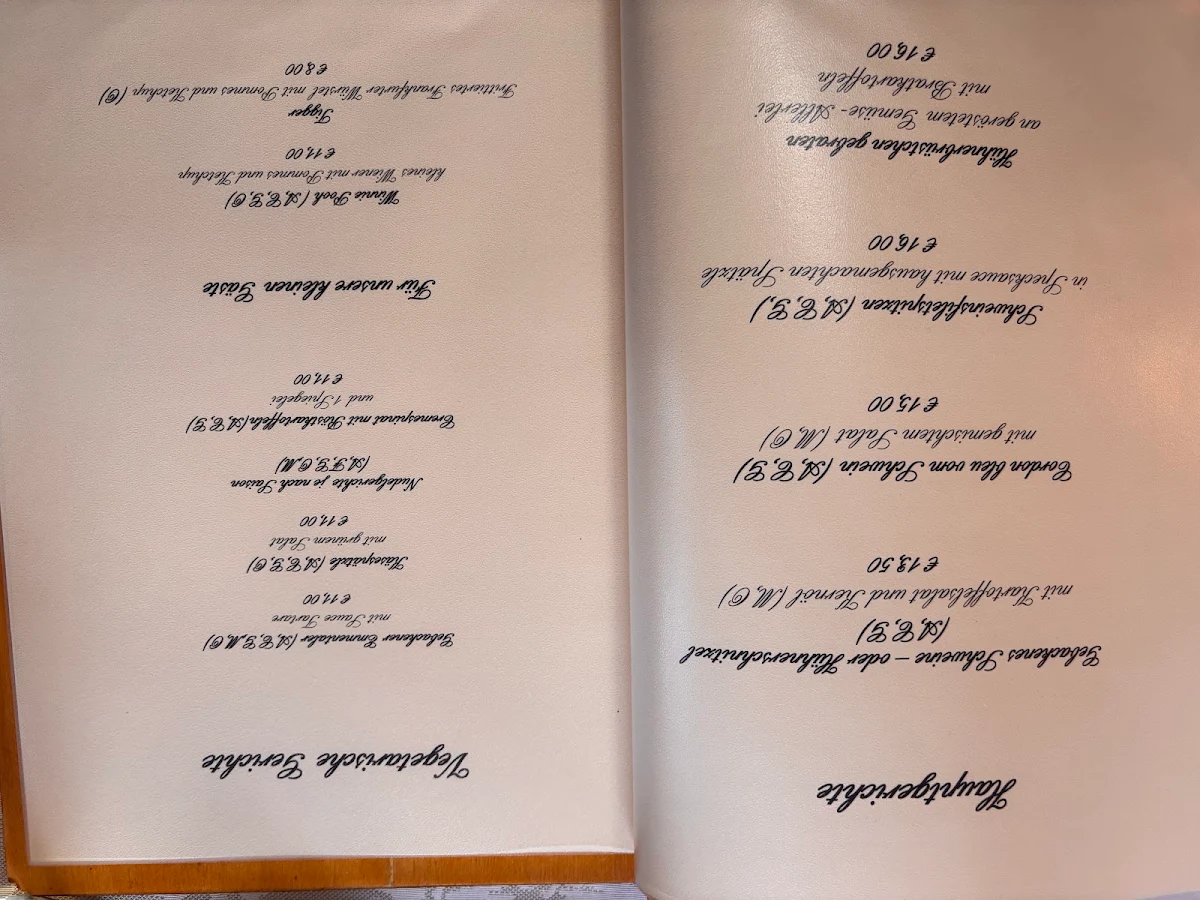 Hauptgerichte
Gebackenes Schweine – oder Hühnerschnitzel
(A, C, G)
mit Kartoffelsalat und Kernöl (M, O)
€ 13,50
Cordon bleu vom Schwein (A, C, G)
mit gemischtem Salat (M, O)
€ 15,00
Schweinsfiletspitzen (A, C, G,)
in Specksauce mit hausgemachten Spätzle
€ 16,00
Hühnerbrüstchen gebraten
an geröstetem Gemüse - Allerlei
mit Bratkartoffeln
€ 16,00
Vegetarische Gerichte
Gebackener Emmentaler (A, C, G, M, O)
mit Sauce Tartare
€ 11,00
Käsespätzle (A, C, G, O)
mit grünem Salat
€ 11,00
Nudelgerichte je nach Saison
(A, F, G, O, M)
Cremespinat mit Röstkartoffeln (A, C, G)
und 1 Spiegelei
€ 11,00
Für unsere kleinen Gäste
Winnie Pooh (A, C, G, O)
kleines Wiener mit Pommes und Ketchup
€ 11,00
Tigger
Frittiertes Frankfurter Würstel mit Pommes und Ketchup (O)
€ 8,00